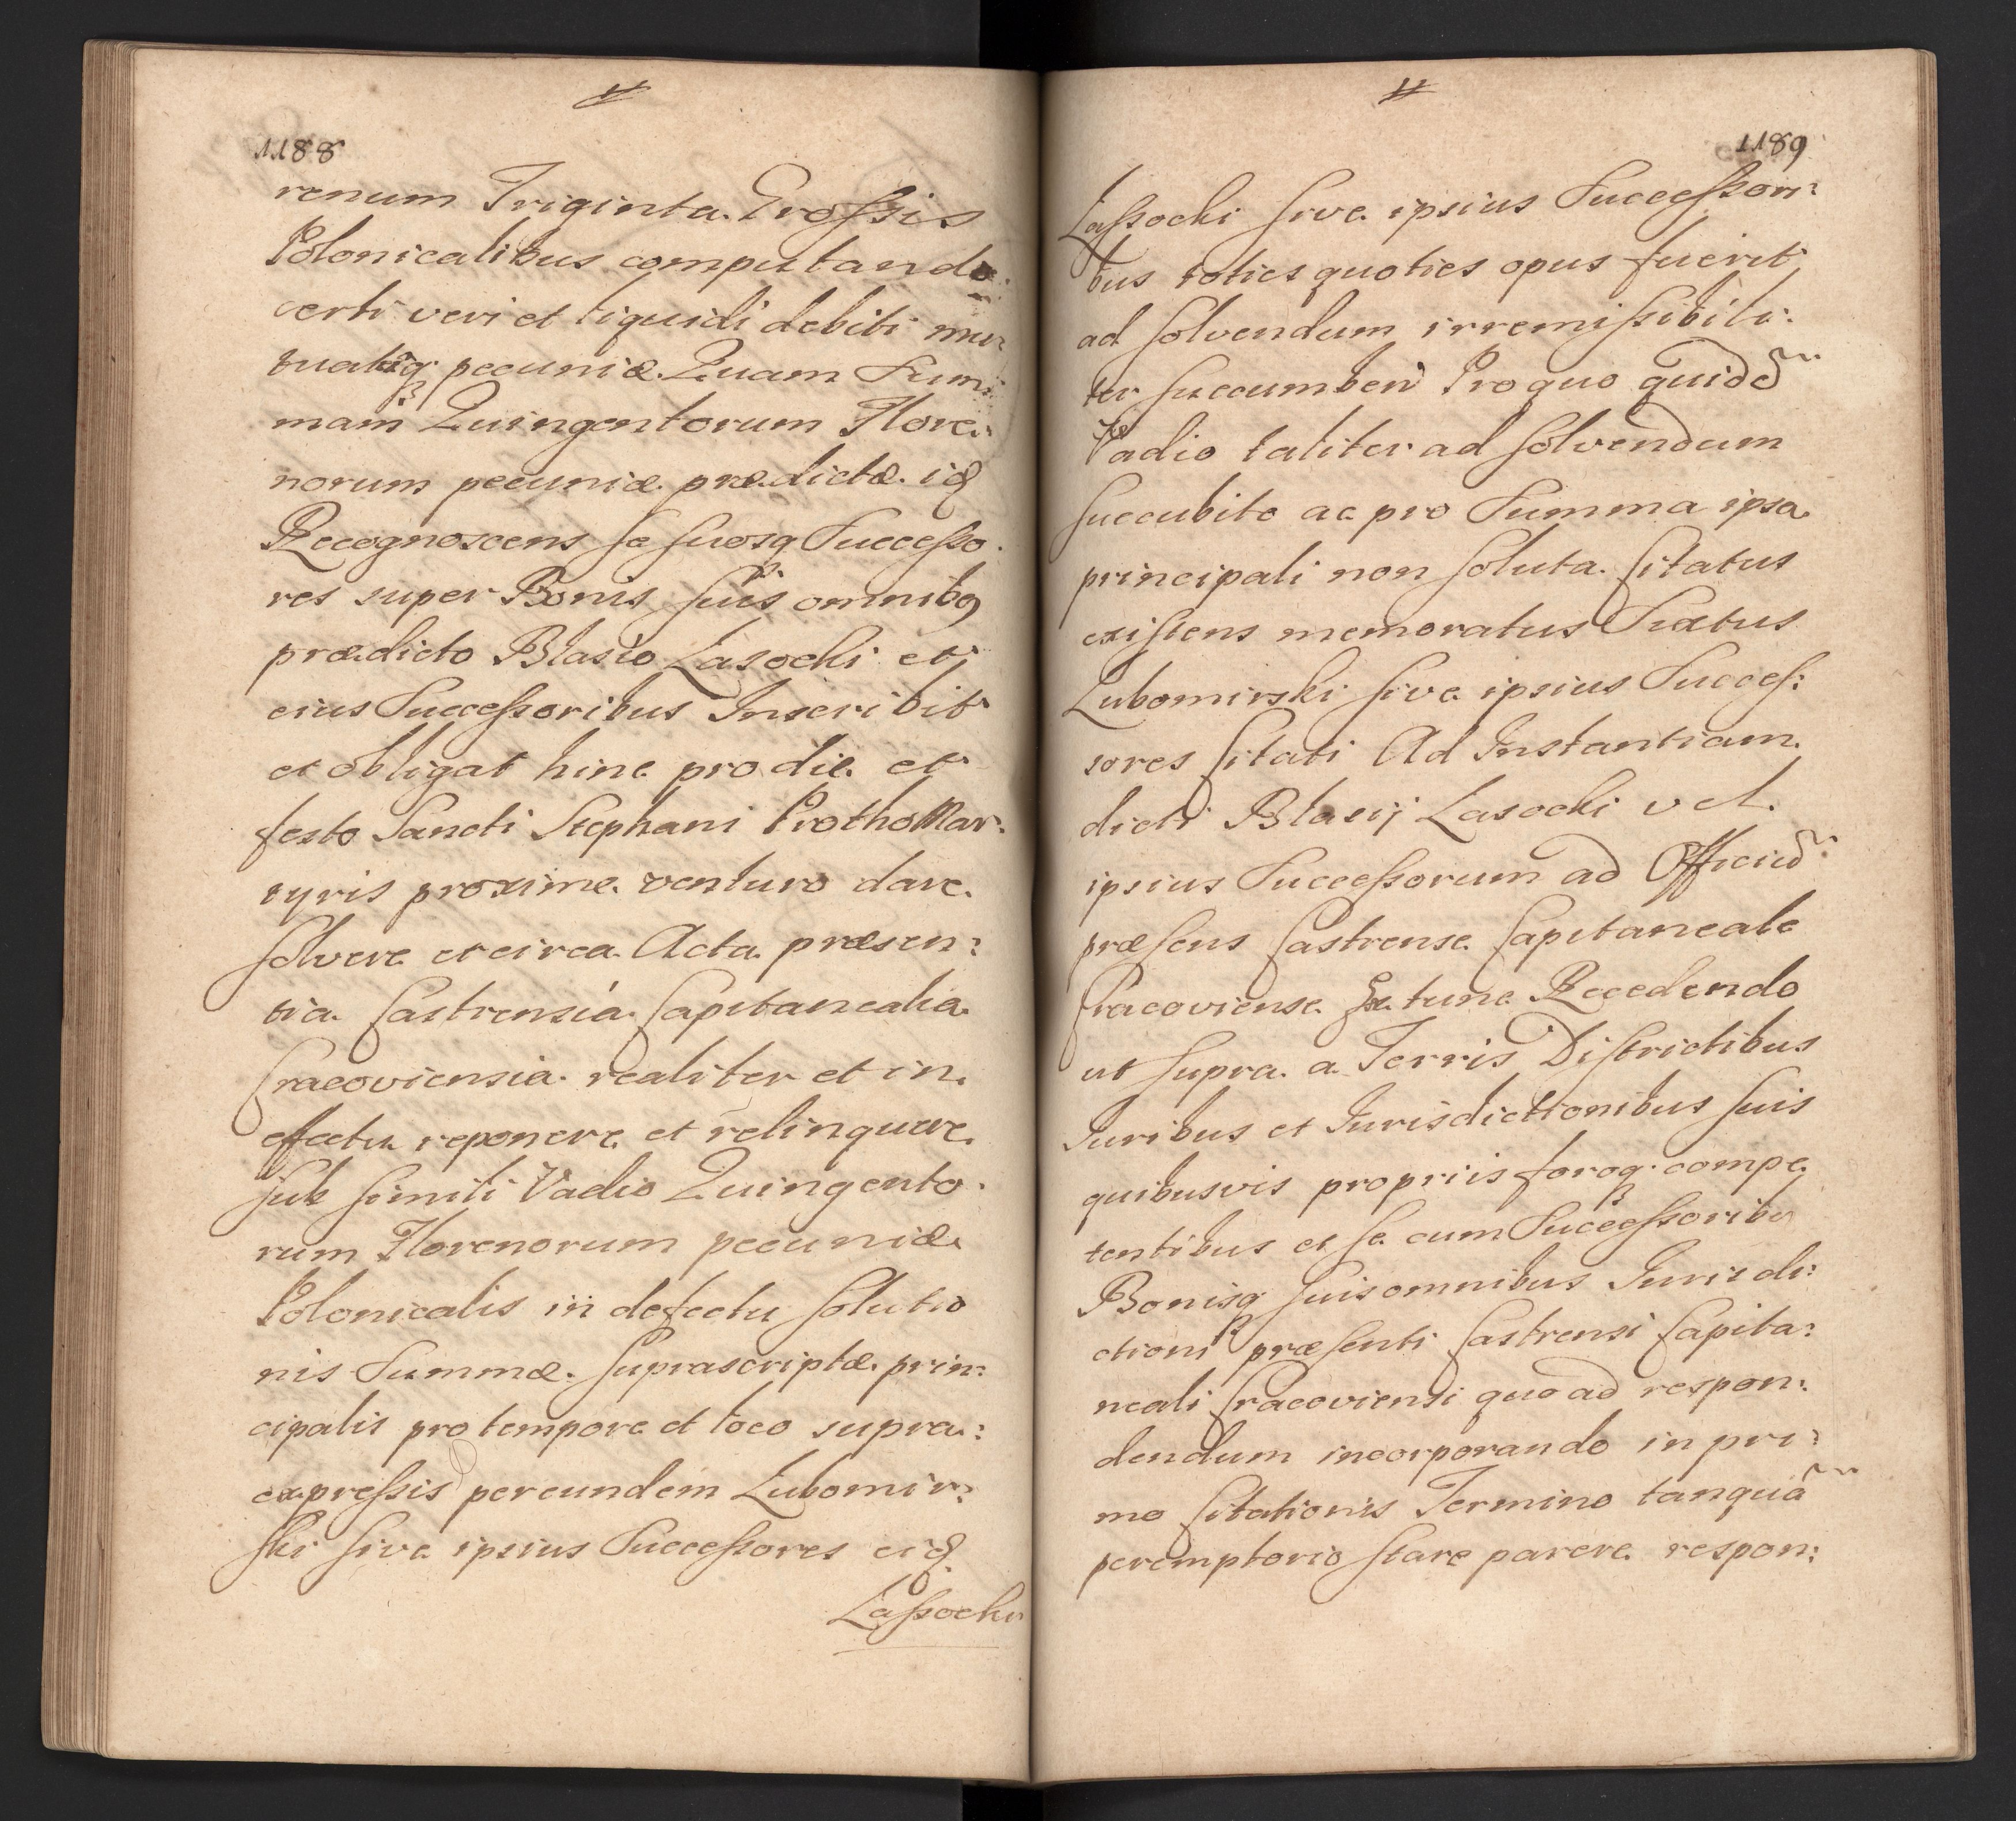 1188
renum Triginta Grossis
Polonicalibus computando
certi veri et liquidi debiti mu-
tuatæq; pecuniæ. Quam Sum-
mam Quingentorum Flore-
norum pecuniæ prædictæ id
Recognoscens se suosq Successo-
res super Bonis suis omnibq
prædicto Blasio Lasocki et
eius Successoribus Inscribit
et obligat hinc pro die et
festo Sancti Stephani ProthoMar-
tyris proxime venturo dare
solvere et circa Acta præsen:
tia Castrensia Capitanealia
Cracoviensia realiter et in
effectu reponere et relinquere
sub simili Vadio Quingento-
rum Florenorum pecuniæ
Polonicalis in defectu solutio
nis Summæ suprascriptæ prin:
cipalis pro tempore et loco supra:
expressis per eundem Lubomir:
ski sive ipsius Successores eid
Lassocki
1189
Lassocki sive ipsius Successori:
bus toties quoties opus fuerit
ad solvendum irremissibili:
ter succumben Pro quo quidē
Vadio taliter ad solvendum
succubito ac pro Summa ipsa
principali non soluta Citatus
existens memoratus Sixtus
Lubomirski sive ipsius Succes:
sores Citati Ad Instantiam
dicti Blasij Lasocki vel
ipsius Successorum ad Officiū
præsens Castrense Capitaneale
Cracoviense Ex tunc Recedendo
ut supra a Terris Districtibus
Iuribus et Iurisdictionibus suis
quibusvis propriis foroq; compe
tentibus et se cum Successoribu
Bonisq suis omnibus Iurisdi:
ctioni præsenti Castrensi Capita:
neali Cracoviensi quo ad respon:
dendum incorporando in pri:
mo Citationis Termino tanquā
peremptorio stare parere respon: